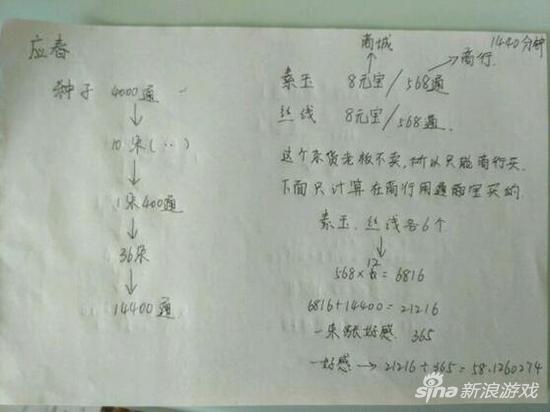 应春
种子 4000通
↓
10朵(...)
↓
1朵400通
↓
36朵
↓
14400通
1440分钟
商城
商行
素玉 8元宝/568通
丝线 8元宝/568通.
这个杂货老板不卖,所以只能商行买.
下面只计算在商行用通宝买的.
素玉、丝线各6个
↓
12
568×6=6816
6816+14400=21216
一朵涨好感 365
一好感→21216÷365=58.1260274
sina新浪游戏